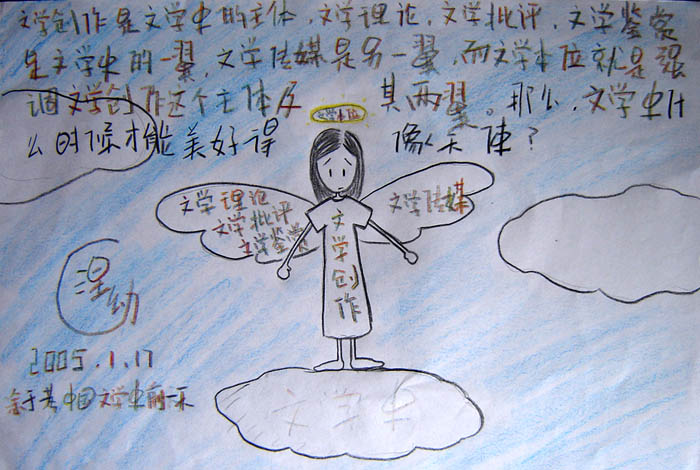 文学创作是文学史的主体,文学理论,文学批评,文学鉴赏
是文学史的一翼,文学传媒是另一翼,而文学本位就是强
调文学创作这个主体及其两翼。那么,文学史什
么时候才能美好得像天使?
文学本位
文学理论
文学批评
文学鉴赏
文学传媒
文学创作
2005.1.17
于考中国文学史前一天
文学史